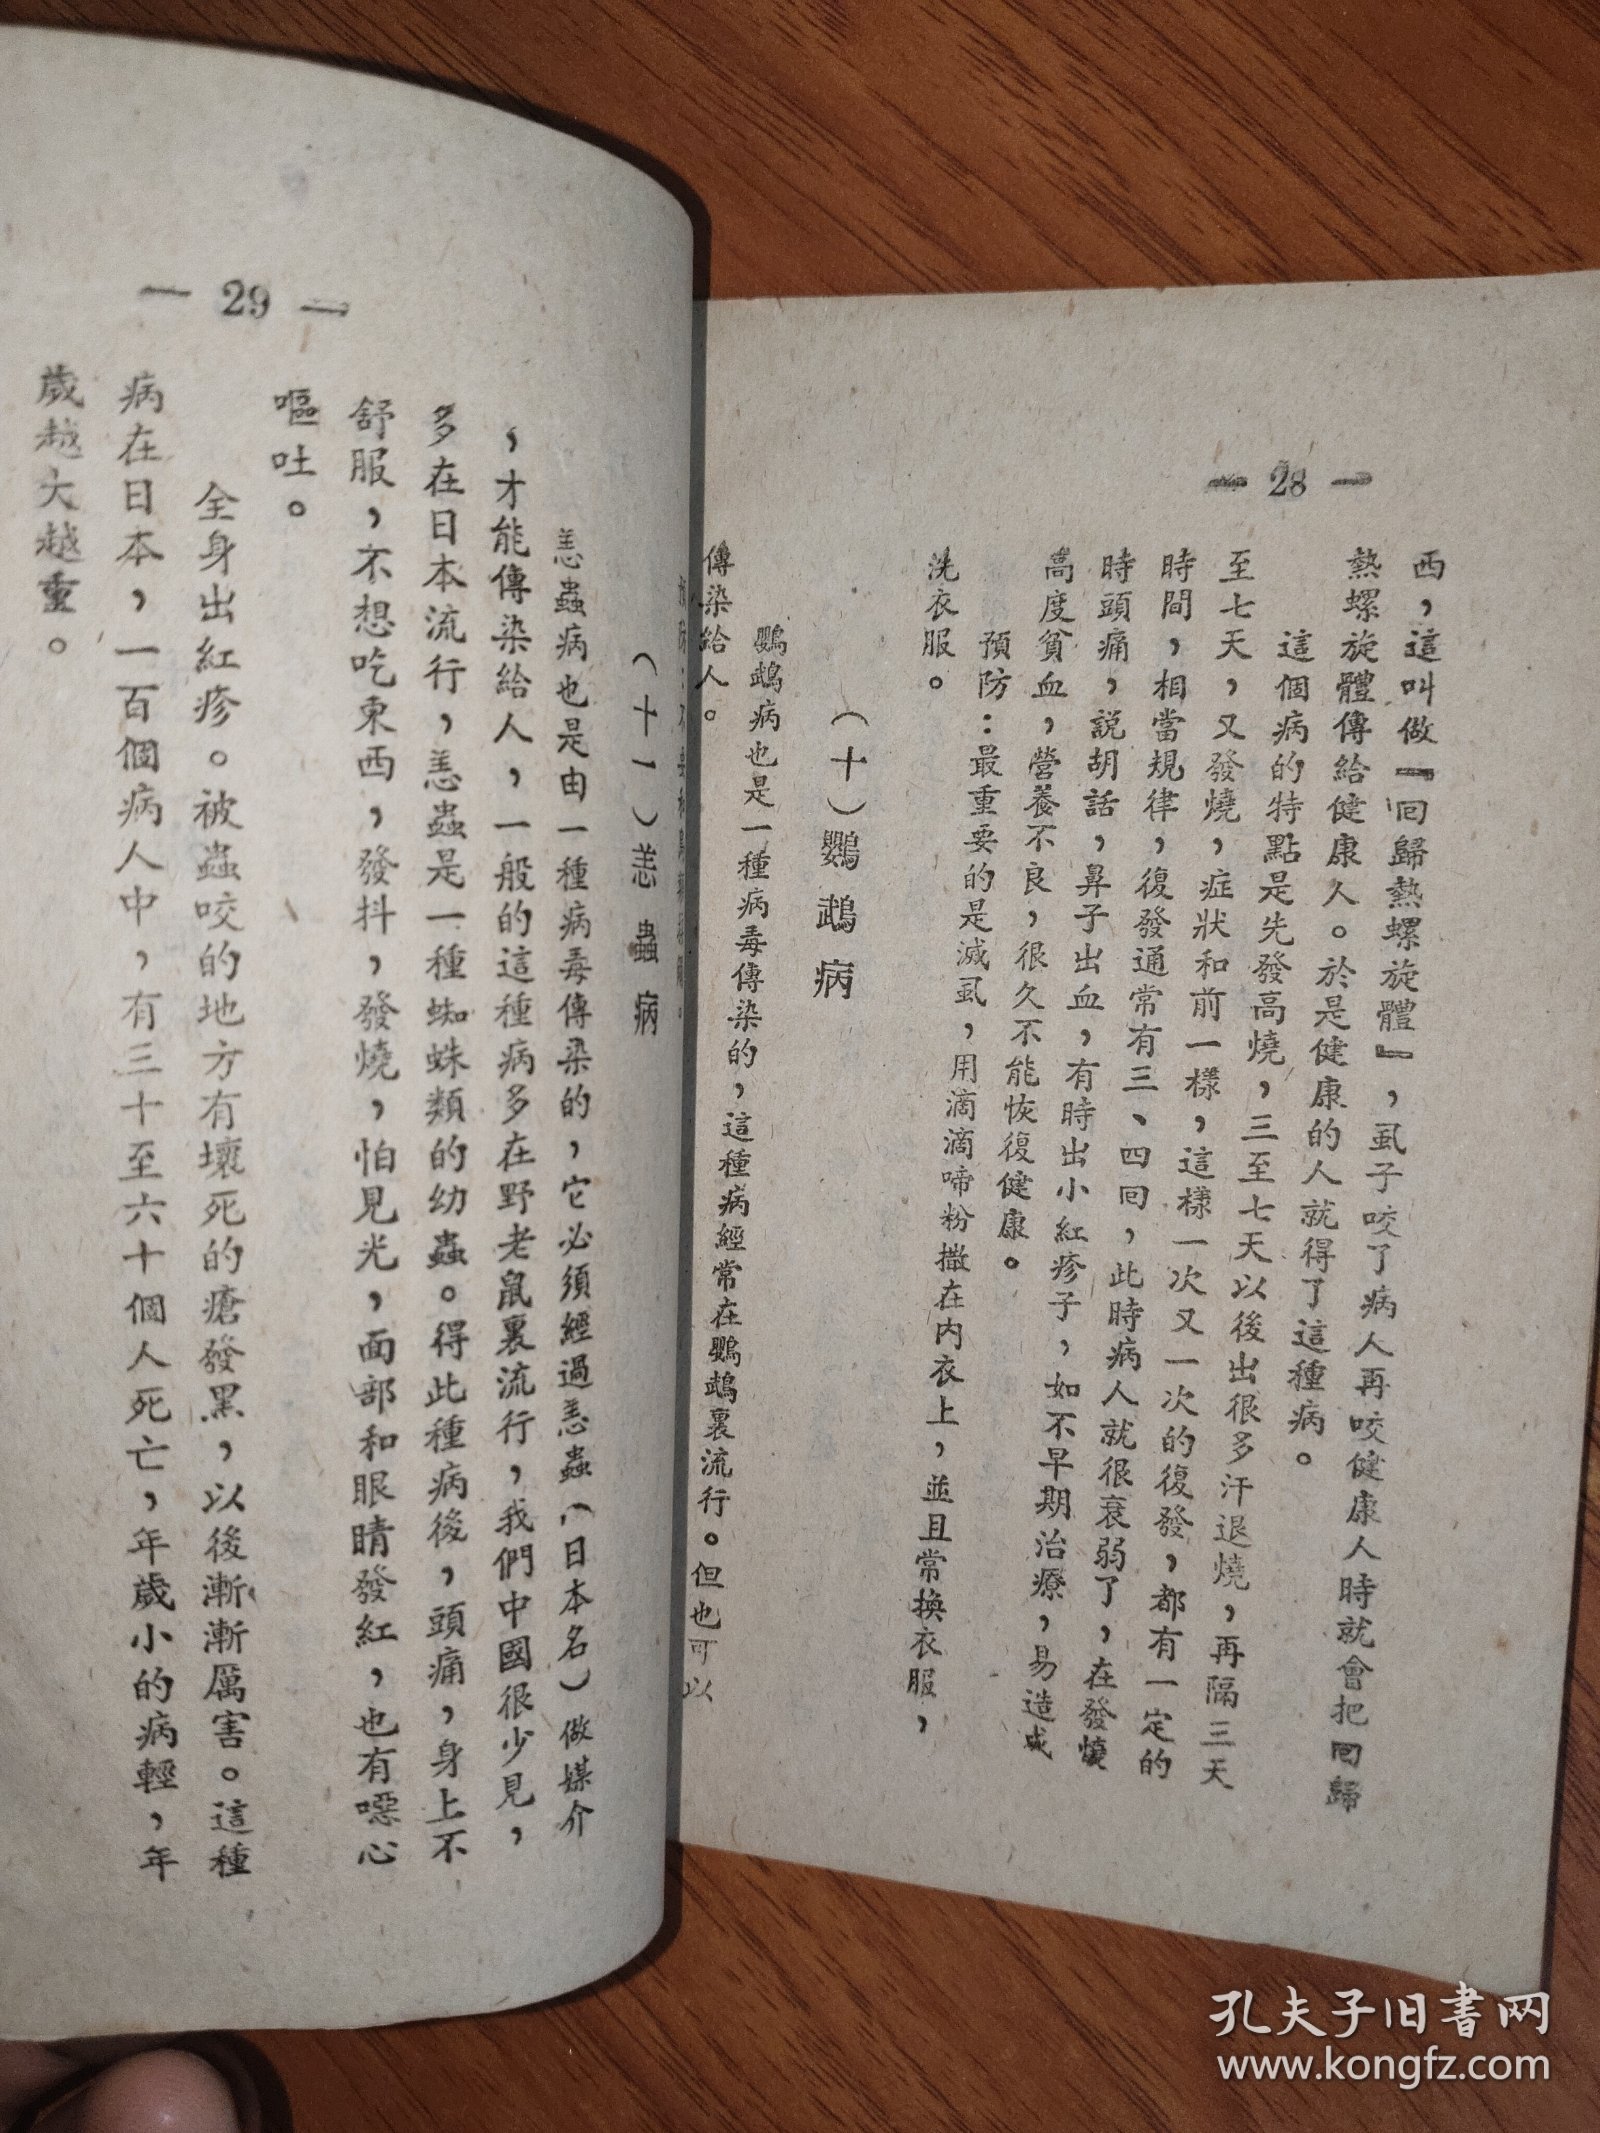 — 28 —
西，這叫做『回歸熱螺旋體』，虱子咬了病人再咬健康人時就會把回歸
熱螺旋體傳給健康人。於是健康的人就得了這種病。
這個病的特點是先發高燒，三至七天以後出很多汗退燒，再隔三天
至七天，又發燒，症狀和前一樣，這樣一次又一次的復發，都有一定的
時間，相當規律，復發通常有三、四回，此時病人就很衰弱了，在發燒
時頭痛，説胡話，鼻子出血，有時出小紅疹子，如不早期治療，易造成
高度貧血，營養不良，很久不能恢復健康。
預防：最重要的是滅虱，用滴滴啼粉撒在内衣上，並且常換衣服，
洗衣服。
（十）鸚鵡病
鸚鵡病也是一種病毒傳染的，這種病經常在鸚鵡裏流行。但也可以
傳染給人。
— 29 —
（十一）恙蟲病
恙蟲病也是由一種病毒傳染的，它必須經過恙蟲（日本名）做媒介
，才能傳染給人，一般的這種病多在野老鼠裏流行，我們中國很少見，
多在日本流行，恙蟲是一種蜘蛛類的幼蟲。得此種病後，頭痛，身上不
舒服，不想吃東西，發抖，發燒，怕見光，面部和眼睛發紅，也有噁心
嘔吐。
全身出紅疹。被蟲咬的地方有壞死的瘡發黑，以後漸漸厲害。這種
病在日本，一百個病人中，有三十至六十個人死亡，年歲小的病輕，年
歲越大越重。
孔夫子旧書网
www.kongfz.com